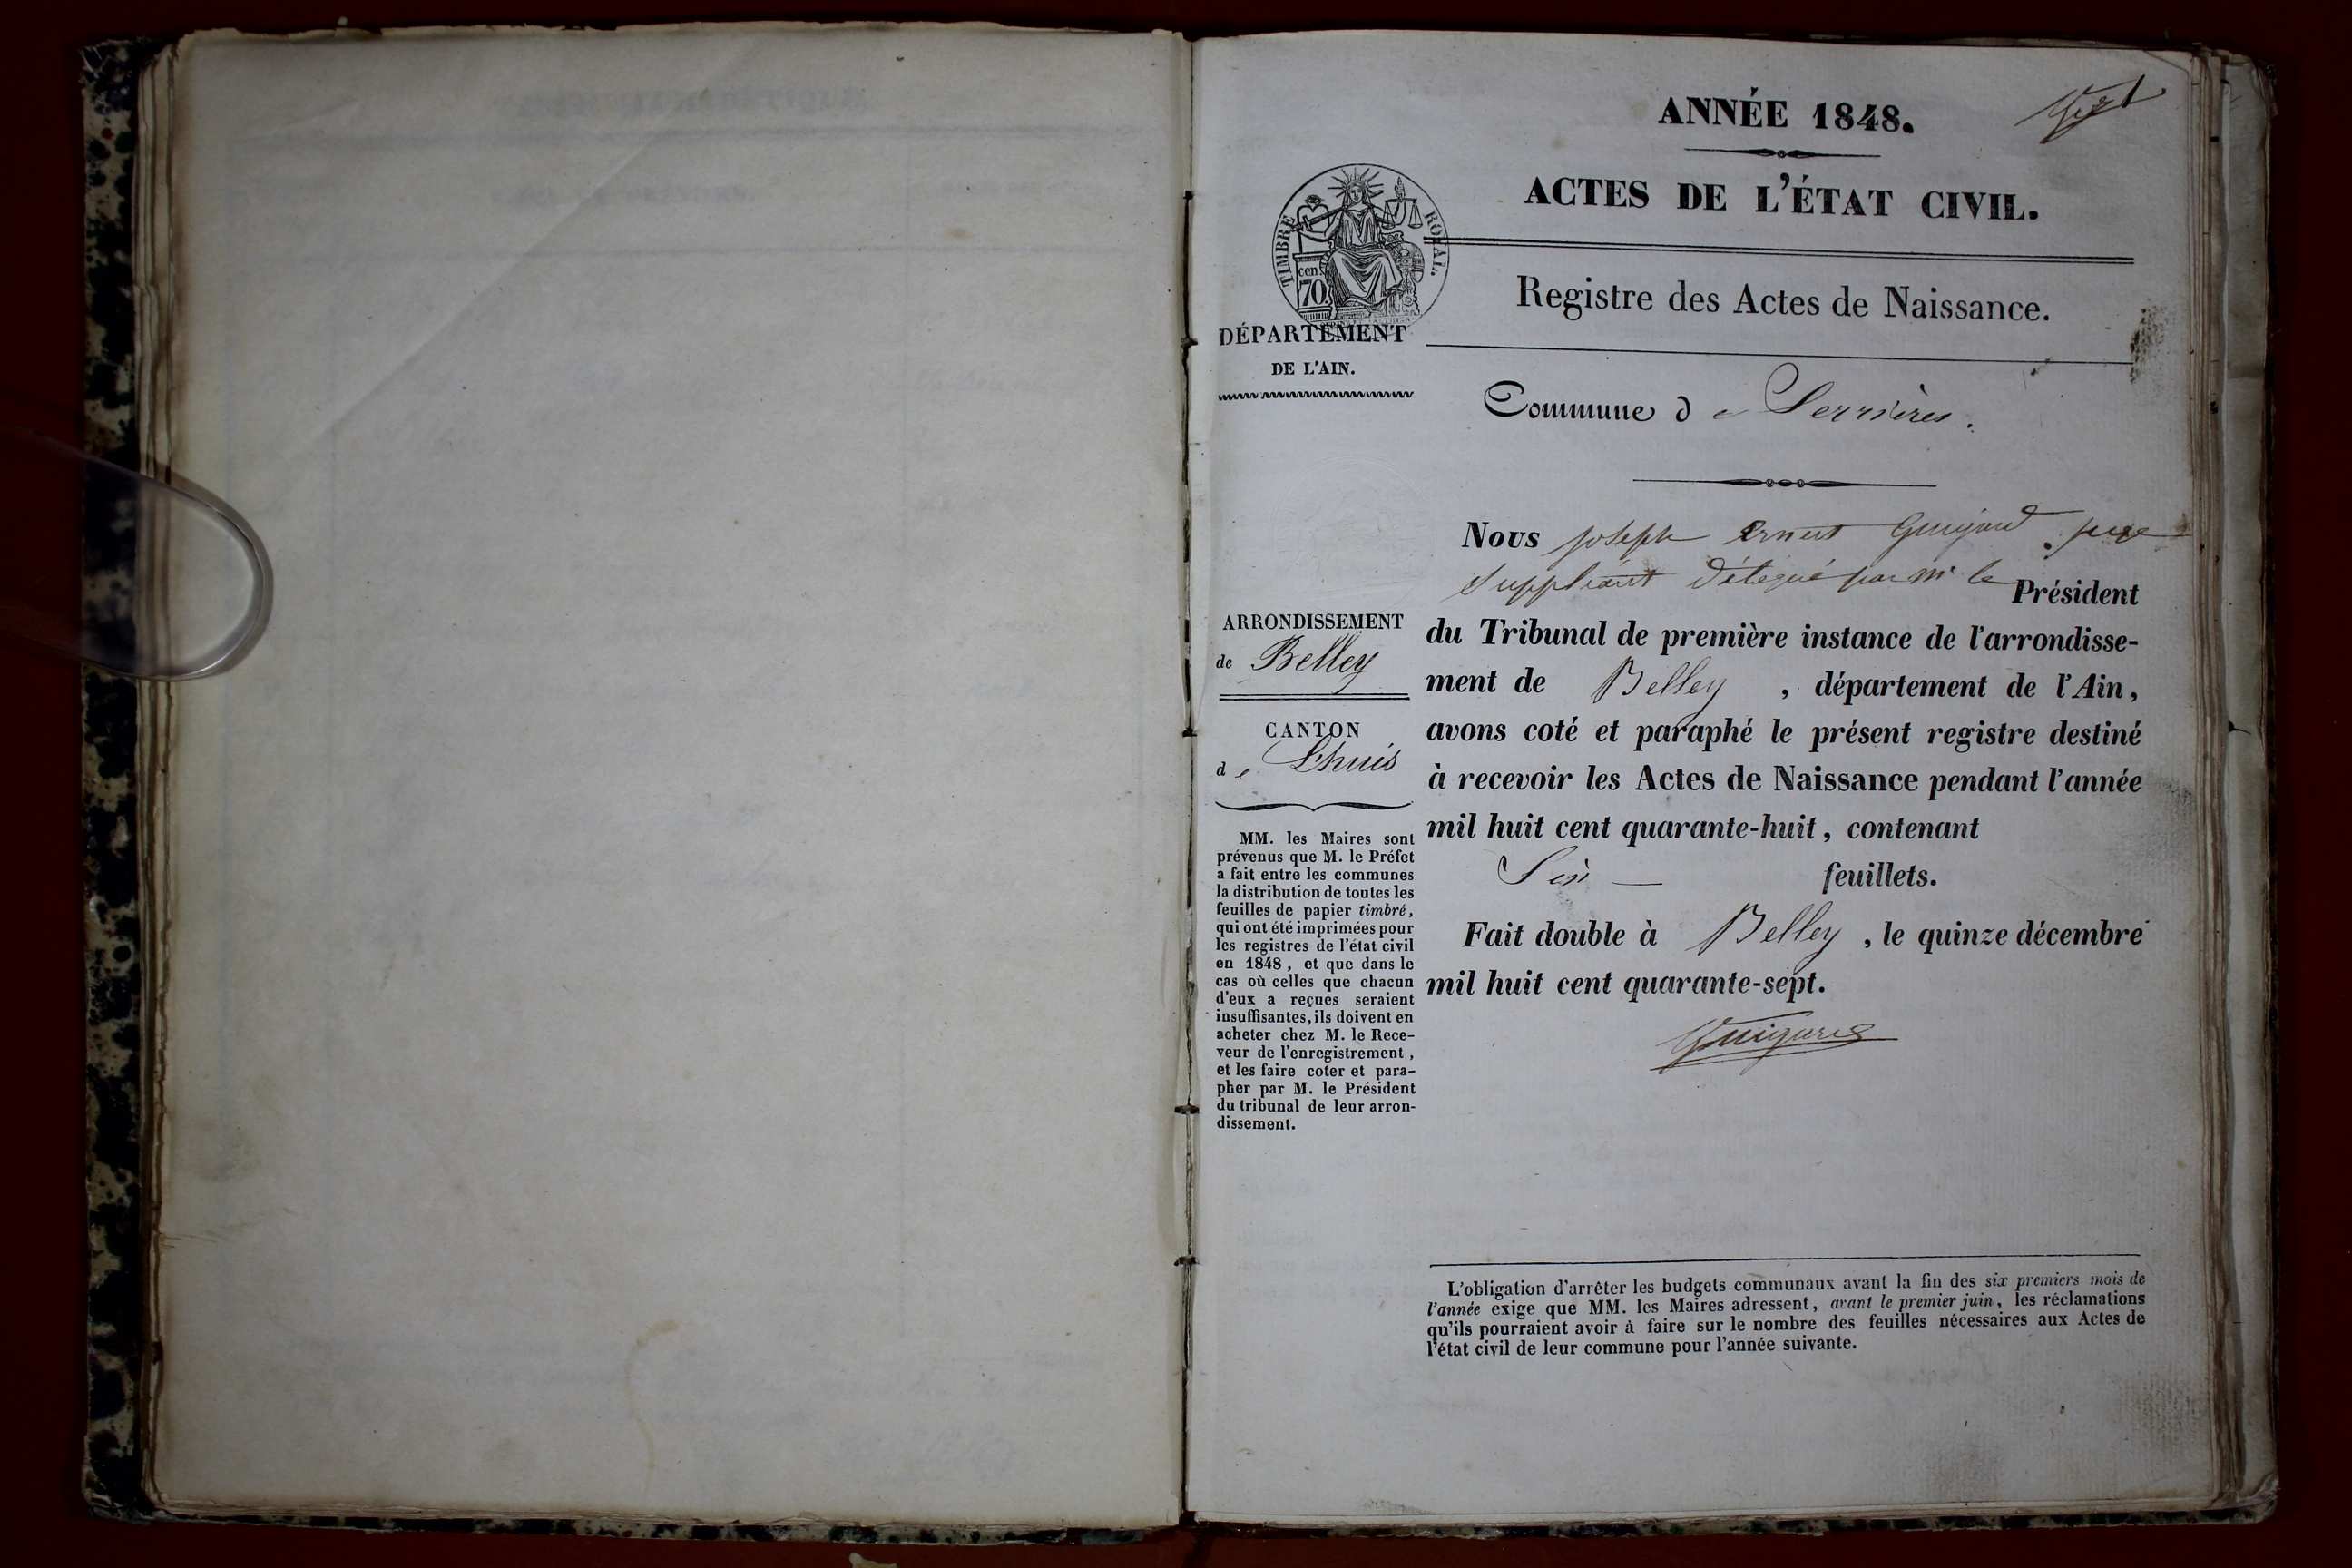 ANNÉE 1848.
ACTES DE L'ÉTAT CIVIL.
TIMBRE ROYAL.
cen.
70
Registre des Actes de Naissance.
DÉPARTEMENT
DE L'AIN.
Commune de Serrières.
Nous joseph Ernest Guigard juge
Suppléant délégué par Mr le Président
du Tribunal de première instance de l'arrondisse-
ment de Belley, département de l'Ain,
avons coté et paraphé le présent registre destiné
à recevoir les Actes de Naissance pendant l'année
mil huit cent quarante-huit, contenant
Six — feuillets.
Fait double à Belley, le quinze décembre
mil huit cent quarante-sept.
ARRONDISSEMENT
de Belley
CANTON
de Lhuis
MM. les Maires sont
prévenus que M. le Préfet
a fait entre les communes
la distribution de toutes les
feuilles de papier timbré,
qui ont été imprimées pour
les registres de l'état civil
en 1848, et que dans le
cas où celles que chacun
d'eux a reçues seraient
insuffisantes, ils doivent en
acheter chez M. le Rece-
veur de l'enregistrement,
et les faire coter et para-
pher par M. le Président
du tribunal de leur arron-
dissement.
L'obligation d'arrêter les budgets communaux avant la fin des six premiers mois de
l'année exige que MM. les Maires adressent, avant le premier juin, les réclamations
qu'ils pourraient avoir à faire sur le nombre des feuilles nécessaires aux Actes de
l'état civil de leur commune pour l'année suivante.